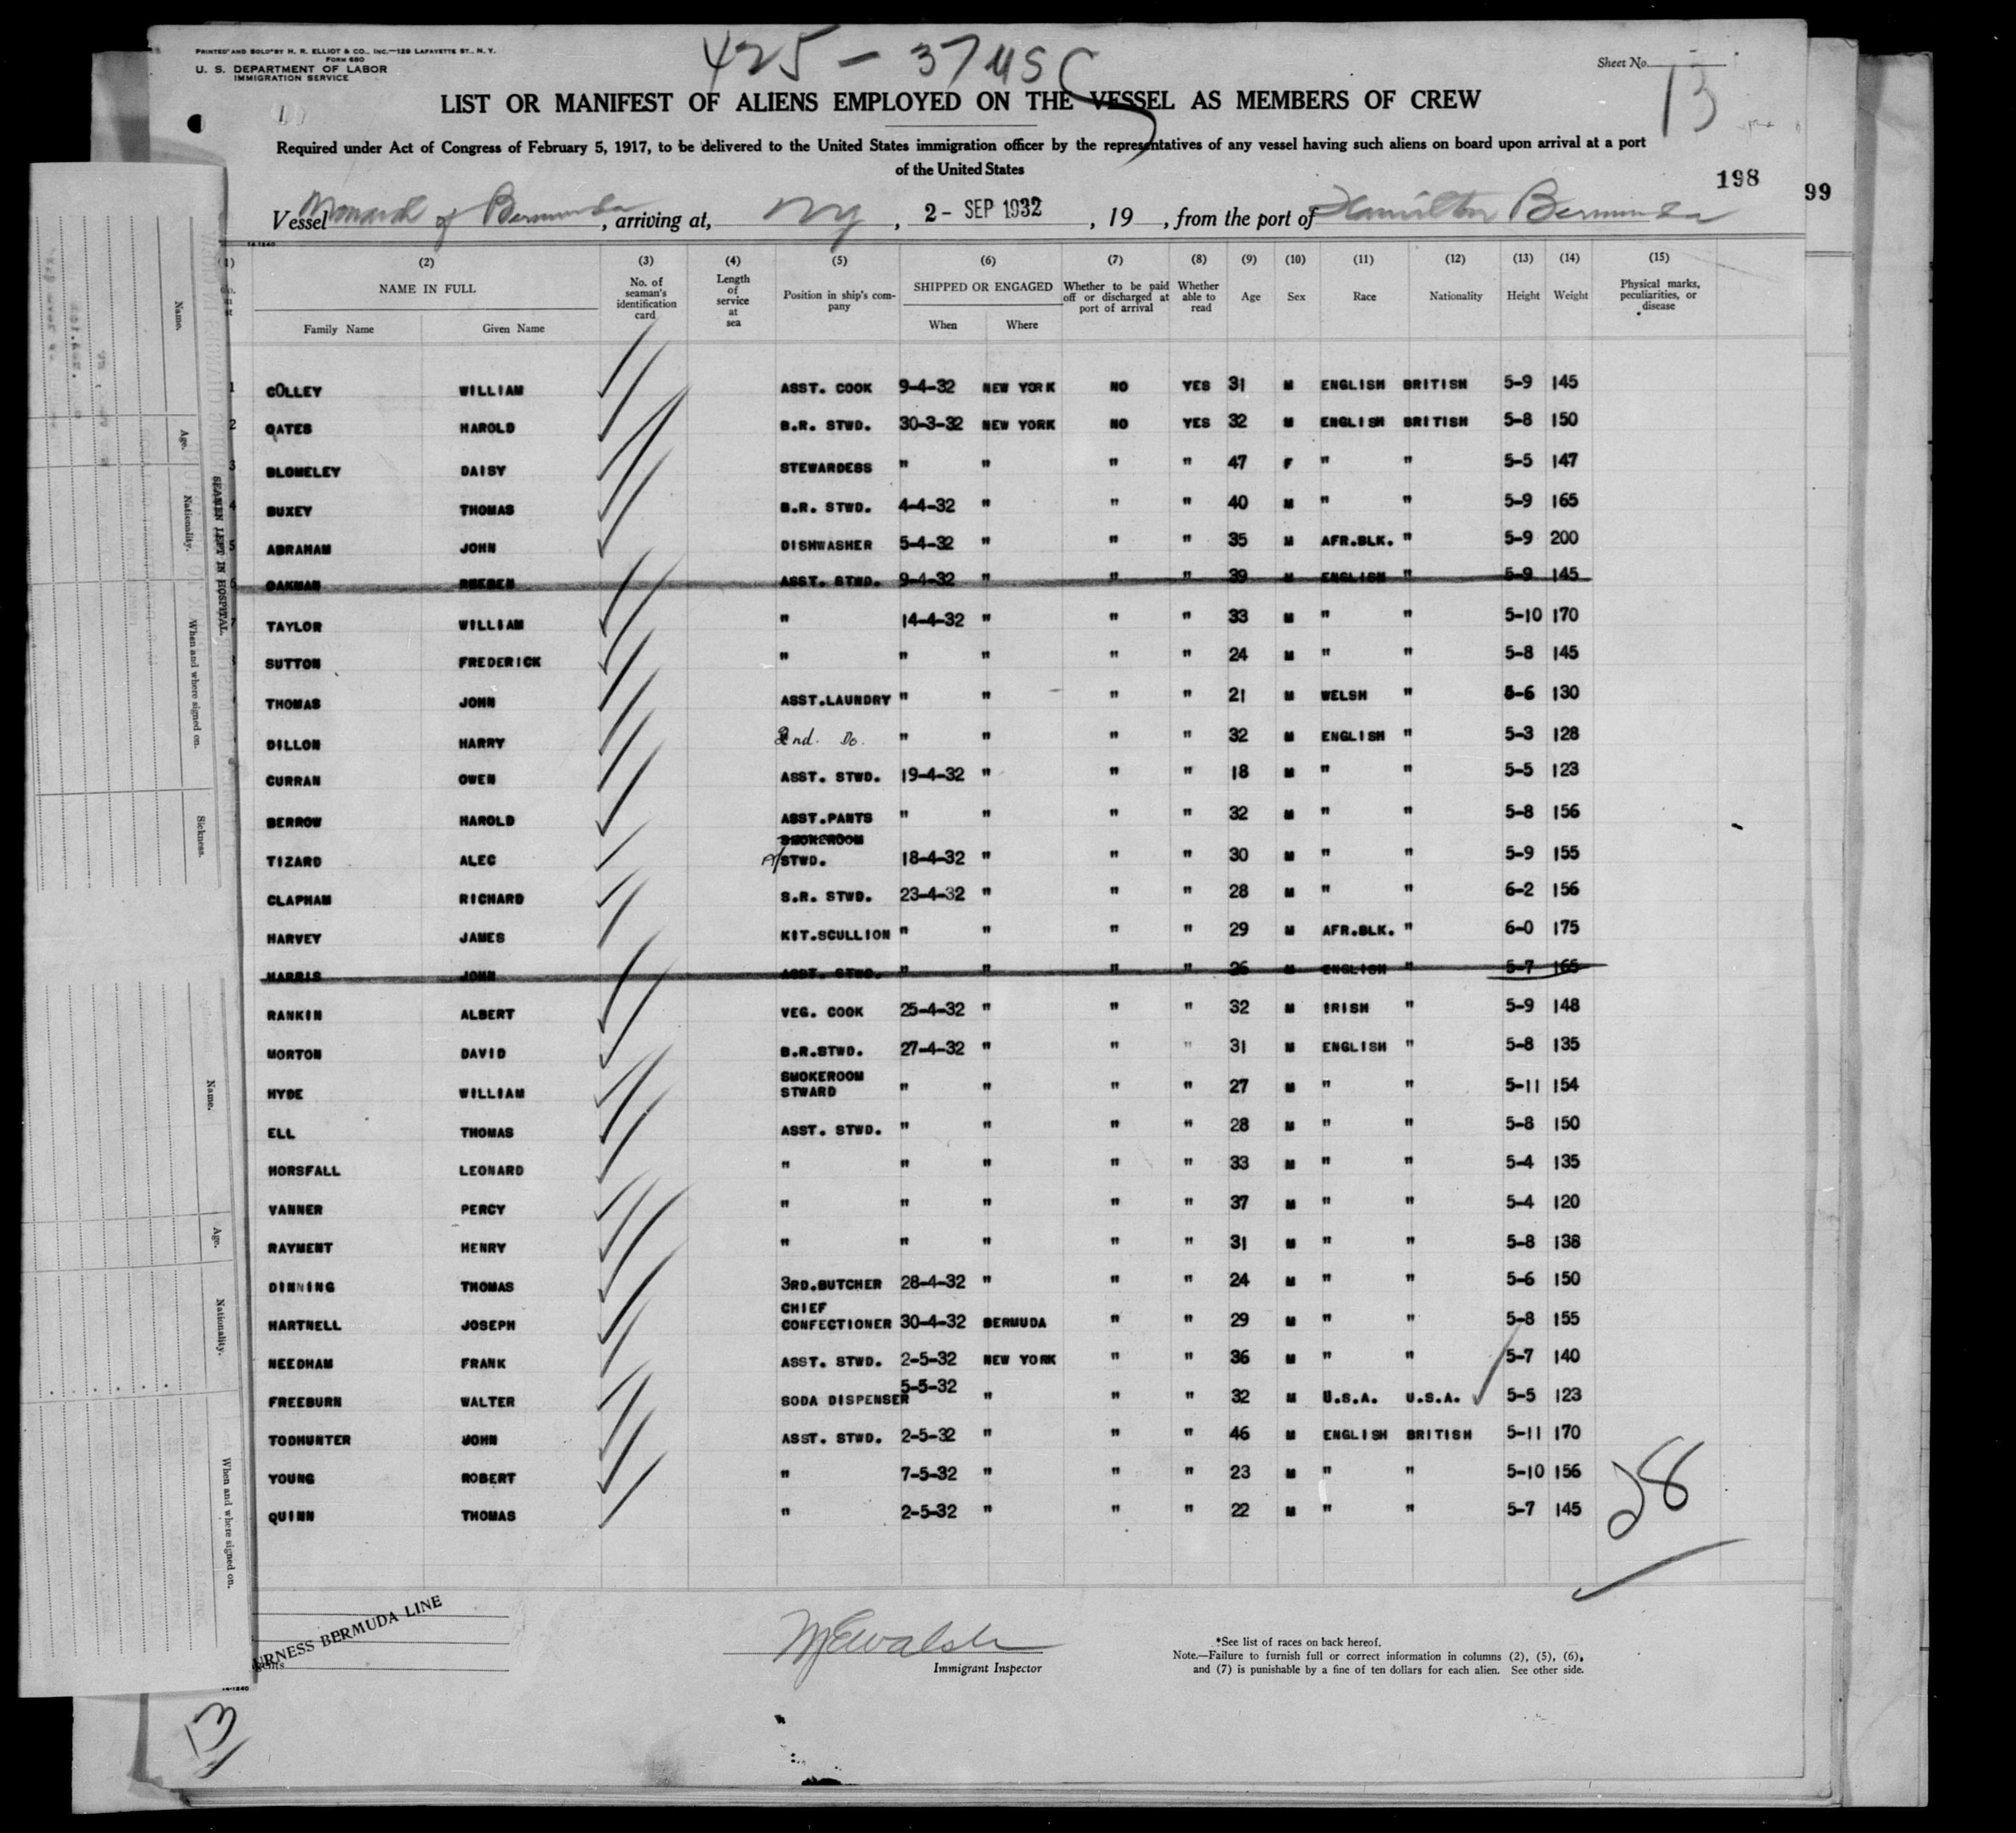 PRINTED AND SOLD BY H. R. ELLIOT & CO., INC.—129 LAFAYETTE ST., N. Y.
FORM 680
U. S. DEPARTMENT OF LABOR
IMMIGRATION SERVICE
425 - 37 USC
Sheet No.
13
LIST OR MANIFEST OF ALIENS EMPLOYED ON THE VESSEL AS MEMBERS OF CREW
Required under Act of Congress of February 5, 1917, to be delivered to the United States immigration officer by the representatives of any vessel having such aliens on board upon arrival at a port
of the United States
198
99
Vessel Monarch of Bermuda, arriving at, NY, 2- SEP 1932, 19 , from the port of Hamilton Bermuda
(2) (3) (4) (5) (6) (7) (8) (9) (10) (11) (12) (13) (14) (15)
NAME IN FULL
Family Name Given Name
No. of seaman's identification card
Length of service at sea
Position in ship's company
SHIPPED OR ENGAGED
When Where
Whether to be paid off or discharged at port of arrival
Whether able to read
Age Sex Race Nationality Height Weight
Physical marks, peculiarities, or disease
1 COLLEY WILLIAM ASST. COOK 9-4-32 NEW YORK NO YES 31 M ENGLISH BRITISH 5-9 145
2 OATES HAROLD B.R. STWD. 30-3-32 NEW YORK NO YES 32 M ENGLISH BRITISH 5-8 150
3 BLOMELEY DAISY STEWARDESS " " " " 47 F " " 5-5 147
4 BUXEY THOMAS B.R. STWD. 4-4-32 " " " 40 M " " 5-9 165
5 ABRAHAM JOHN DISHWASHER 5-4-32 " " " 35 M AFR.BLK. " 5-9 200
6 OAKMAN REEBEN ASST. STWD. 9-4-32 " " " 39 M ENGLISH " 5-9 145
7 TAYLOR WILLIAM " 14-4-32 " " " 33 M " " 5-10 170
SUTTON FREDERICK " " " " " 24 M " " 5-8 145
THOMAS JOHN ASST.LAUNDRY " " " " 21 M WELSH " 5-6 130
DILLON HARRY 2nd. Do. " " " " 32 M ENGLISH " 5-3 128
CURRAN OWEN ASST. STWD. 19-4-32 " " " 18 M " " 5-5 123
BERROW HAROLD ASST.PANTS " " " " 32 M " " 5-8 156
TIZARD ALEC SMOKEROOM A/ STWD. 18-4-32 " " " 30 M " " 5-9 155
CLAPHAM RICHARD S.R. STWD. 23-4-32 " " " 28 M " " 6-2 156
HARVEY JAMES KIT.SCULLION " " " " 29 M AFR.BLK. " 6-0 175
HARRIS JOHN ASST. STWD. " " " " 26 M ENGLISH " 5-7 165
RANKIN ALBERT VEG. COOK 25-4-32 " " " 32 M IRISH " 5-9 148
MORTON DAVID B.R.STWD. 27-4-32 " " " 31 M ENGLISH " 5-8 135
HYDE WILLIAM SMOKEROOM STWARD " " " " 27 M " " 5-11 154
ELL THOMAS ASST. STWD. " " " " 28 M " " 5-8 150
HORSFALL LEONARD " " " " " 33 M " " 5-4 135
VANNER PERCY " " " " " 37 M " " 5-4 120
RAYMENT HENRY " " " " " 31 M " " 5-8 138
DINNING THOMAS 3RD.BUTCHER 28-4-32 " " " 24 M " " 5-6 150
HARTNELL JOSEPH CHIEF CONFECTIONER 30-4-32 BERMUDA " " 29 M " " 5-8 155
NEEDHAM FRANK ASST. STWD. 2-5-32 NEW YORK " " 36 M " " 5-7 140
FREEBURN WALTER SODA DISPENSER 5-5-32 " " " 32 M U.S.A. U.S.A. 5-5 123
TODHUNTER JOHN ASST. STWD. 2-5-32 " " " 46 M ENGLISH BRITISH 5-11 170
YOUNG ROBERT " 7-5-32 " " " 23 M " " 5-10 156
QUINN THOMAS " 2-5-32 " " " 22 M " " 5-7 145
28
URNESS BERMUDA LINE
Immigrant Inspector
*See list of races on back hereof.
Note.—Failure to furnish full or correct information in columns (2), (5), (6),
and (7) is punishable by a fine of ten dollars for each alien. See other side.
14-1240
13
SEAMEN LEFT IN HOSPITAL
Name.
Age.
Nationality.
When and where signed on.
Sickness.
Name.
Age.
Nationality.
When and where signed on.